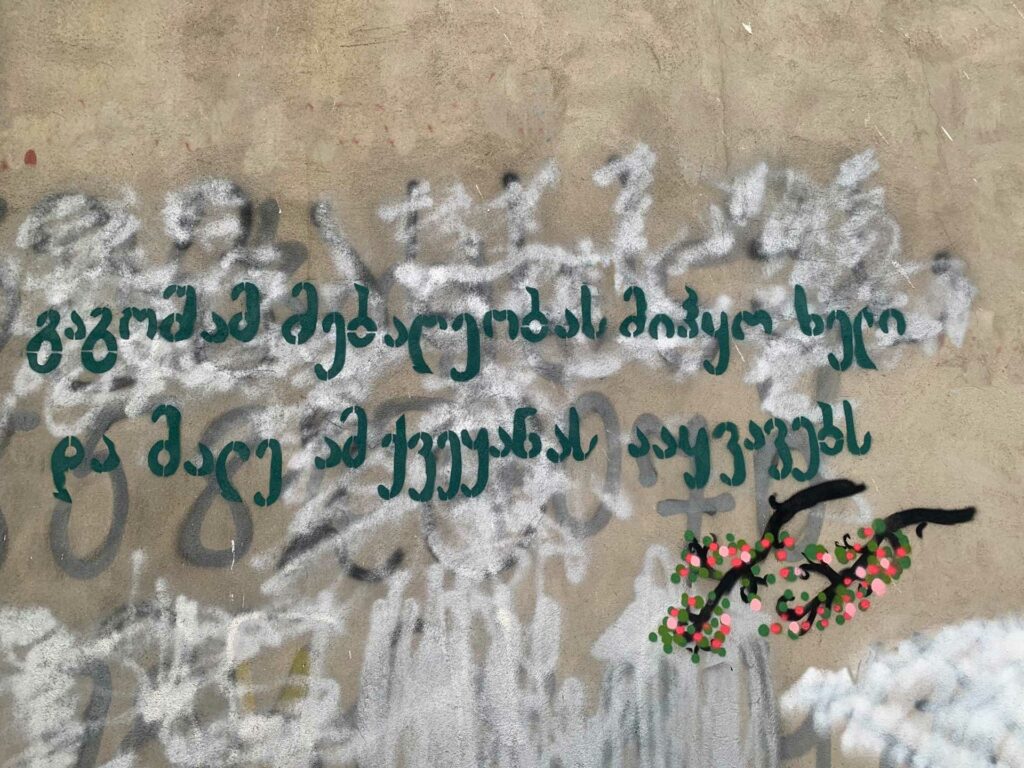 გაგოშამ მებაღეობას მიჰყო ხელი
და მალე ამ ქვეყანას ააყვავებს